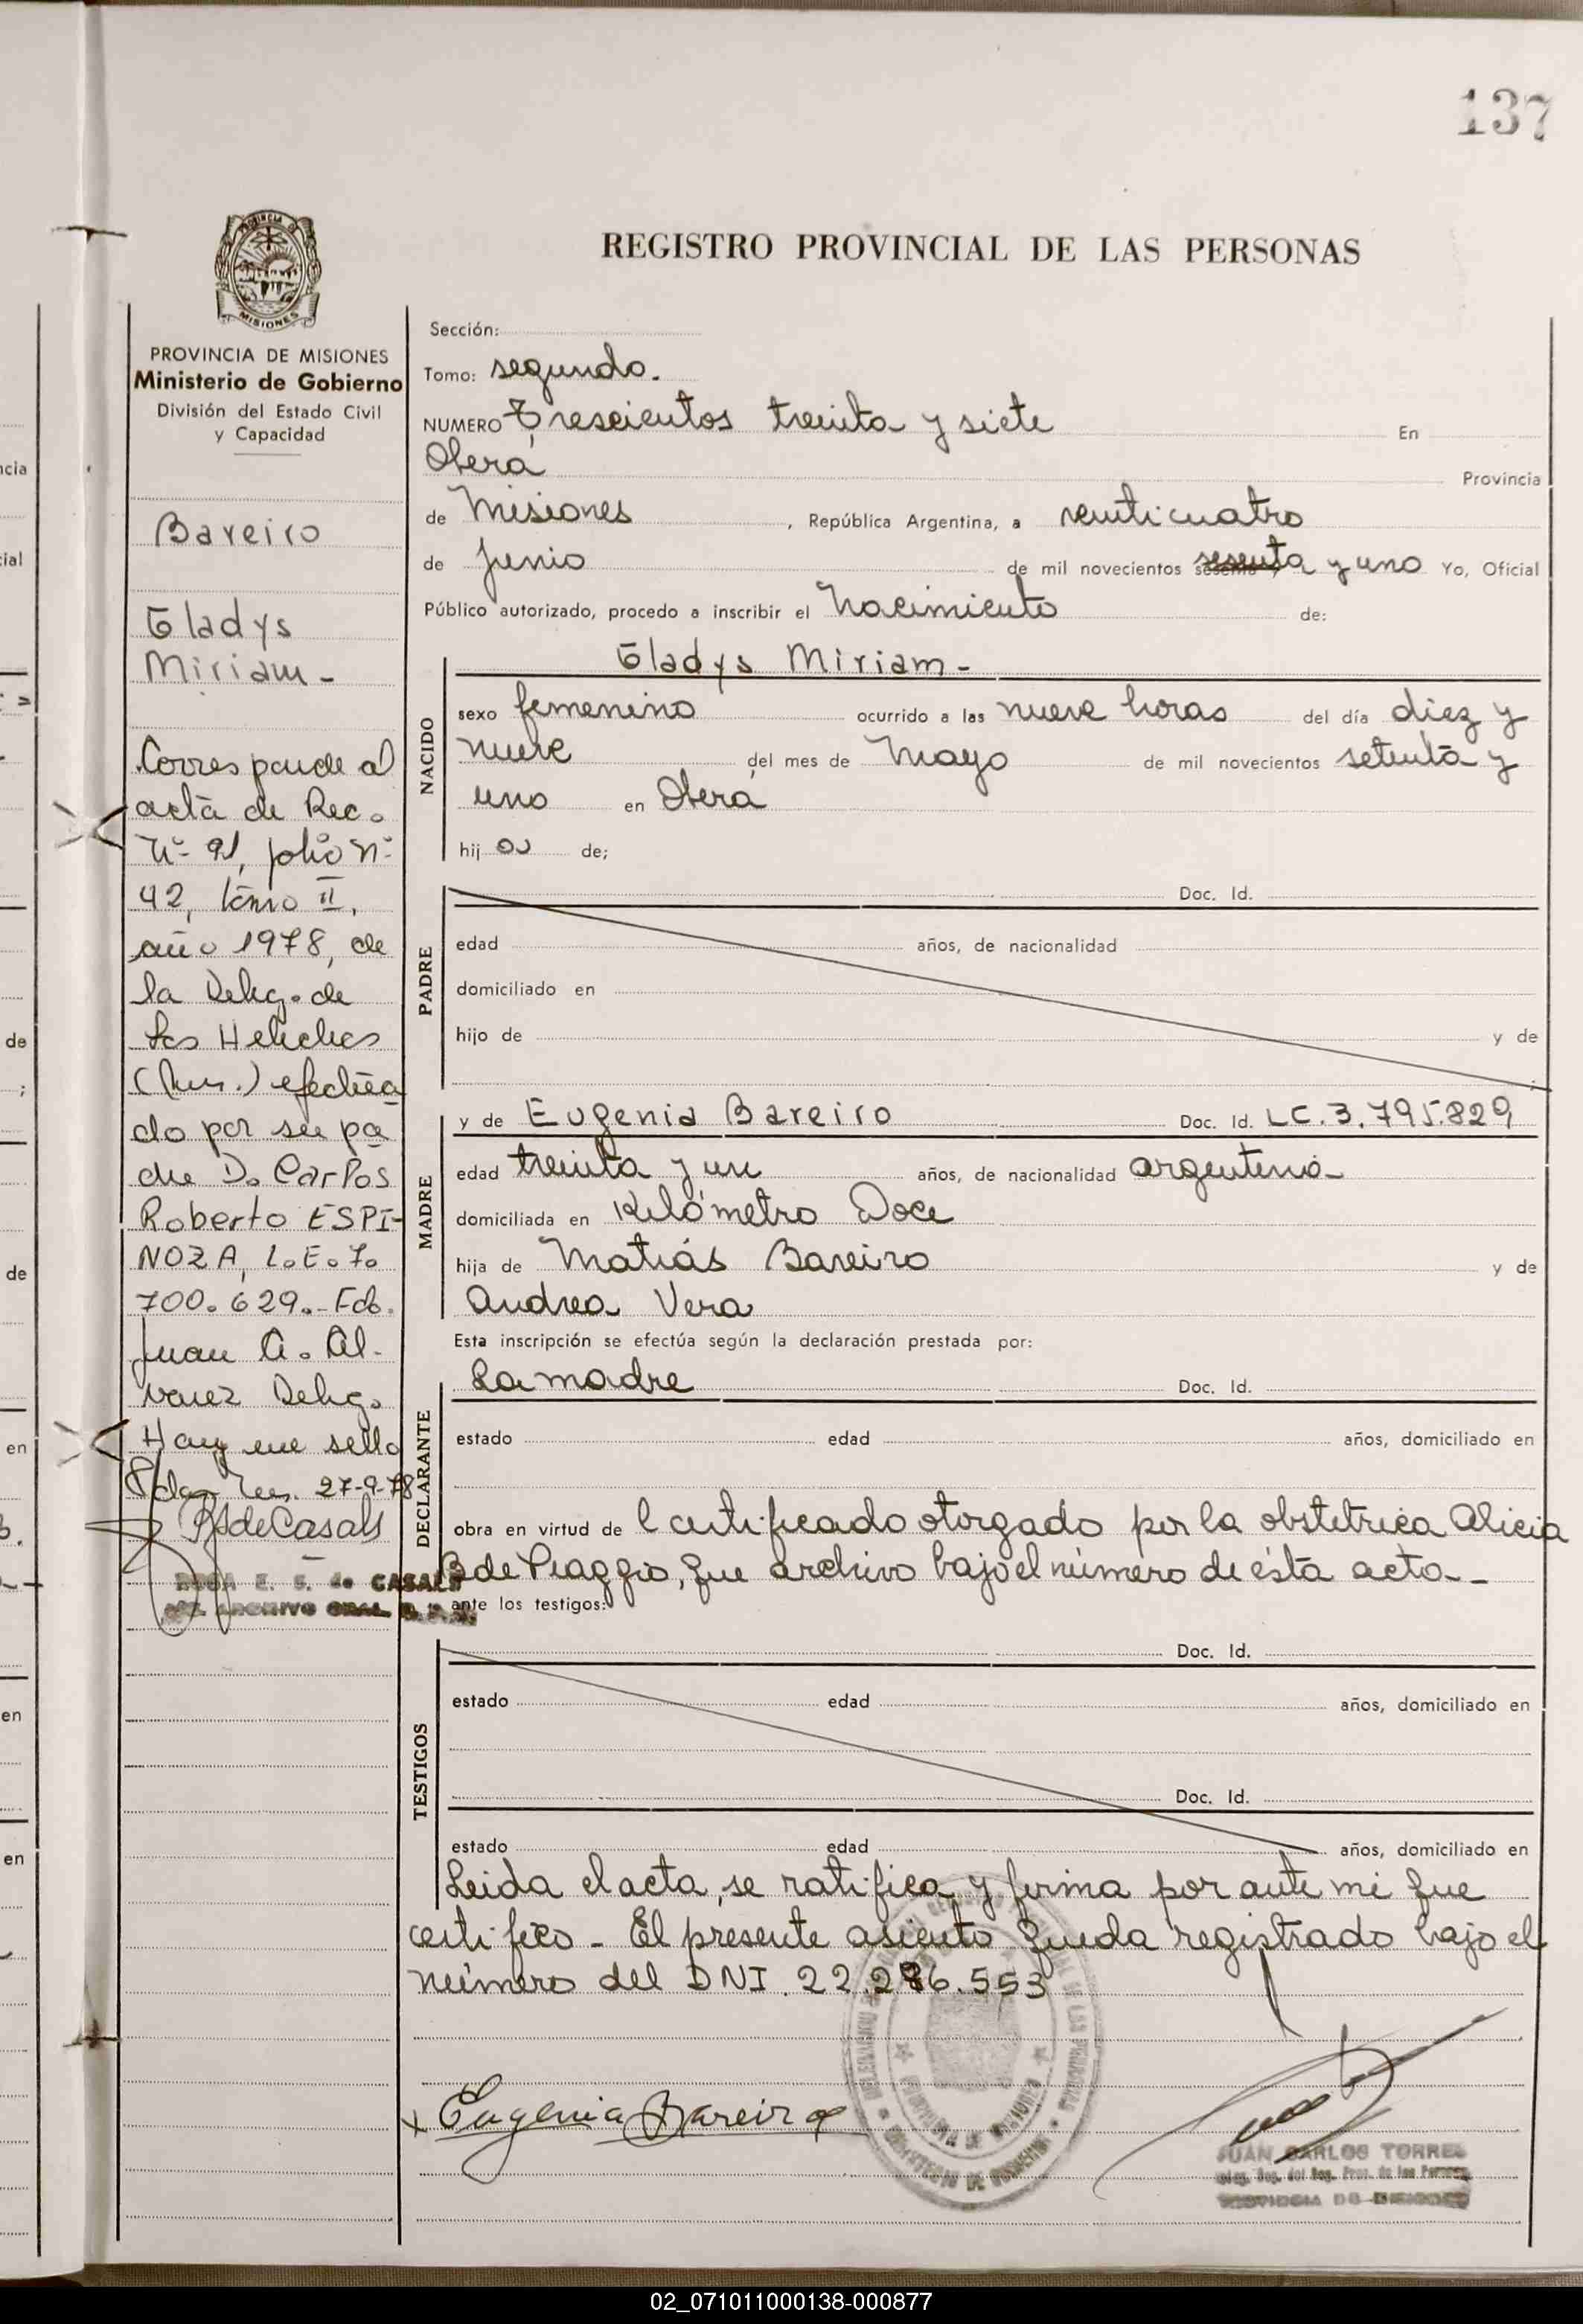 137
REGISTRO PROVINCIAL DE LAS PERSONAS
MISIONES
PROVINCIA DE MISIONES
Ministerio de Gobierno
División del Estado Civil
y Capacidad
Bareiro
Gladys
Miriam -
Corresponde al
acta de Rec.
Nº 91, folio Nº
42, tomo II,
año 1978, de
la Deleg. de
Los Helechos
(Mnes.) efectua
do por su pa
dre D. Carlos
Roberto ESPI-
NOZA, L.E. 7.
700.629.- Fdo.
Juan A. Al-
varez Deleg.
Hay un sello
Pdas. Mnes. 27-9-78
RSdeCasals
ROSA E. S. de CASALS
ARCHIVO GRAL. R. P. P.
Sección:
Tomo: segundo.
NUMERO Trescientos treinta y siete En
Oberá Provincia
de Misiones, República Argentina, a veinticuatro
de Junio de mil novecientos setenta y uno Yo, Oficial
Público autorizado, procedo a inscribir el Nacimiento de:
Gladys Miriam -
NACIDO
sexo femenino ocurrido a las nueve horas del día diez y
nueve del mes de Mayo de mil novecientos setenta y
uno en Oberá
hija de;
PADRE
Doc. Id.
edad años, de nacionalidad
domiciliado en
hijo de y de
MADRE
y de Eugenia Bareiro Doc. Id. LC.3.795.829
edad treinta y un años, de nacionalidad argentina
domiciliada en Kilómetro Doce
hija de Matías Bareiro y de
Andrea Vera
Esta inscripción se efectúa según la declaración prestada por:
DECLARANTE
La madre Doc. Id.
estado edad años, domiciliado en
obra en virtud de l certificado otorgado por la obstetrica Alicia
B de Piaggio, que archivo bajo el número de ésta acta--
ante los testigos:
TESTIGOS
Doc. Id.
estado edad años, domiciliado en
Doc. Id.
estado edad años, domiciliado en
Leida el acta, se ratifica y firma por ante mi que
certifico - El presente asiento queda registrado bajo el
número del DNI. 22.286.553
Eugenia Bareiro
JUAN CARLOS TORRES
PROVINCIA DE MISIONES
02_071011000138-000877